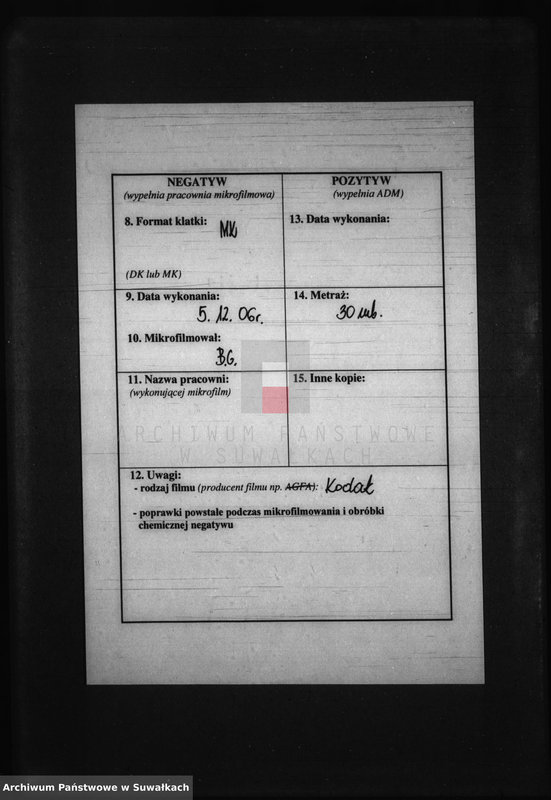 NEGATYW
(wypełnia pracownia mikrofilmowa)
POZYTYW
(wypełnia ADM)
8. Format klatki: MK
(DK lub MK)
13. Data wykonania:
9. Data wykonania:
5. 12. 06r.
14. Metraż:
30 mb.
10. Mikrofilmował:
B.G.
11. Nazwa pracowni:
(wykonującej mikrofilm)
15. Inne kopie:
ARCHIWUM PAŃSTWOWE
W SUWAŁKACH
12. Uwagi:
- rodzaj filmu (producent filmu np. AGFA): Kodak
- poprawki powstałe podczas mikrofilmowania i obróbki
chemicznej negatywu
Archiwum Państwowe w Suwałkach